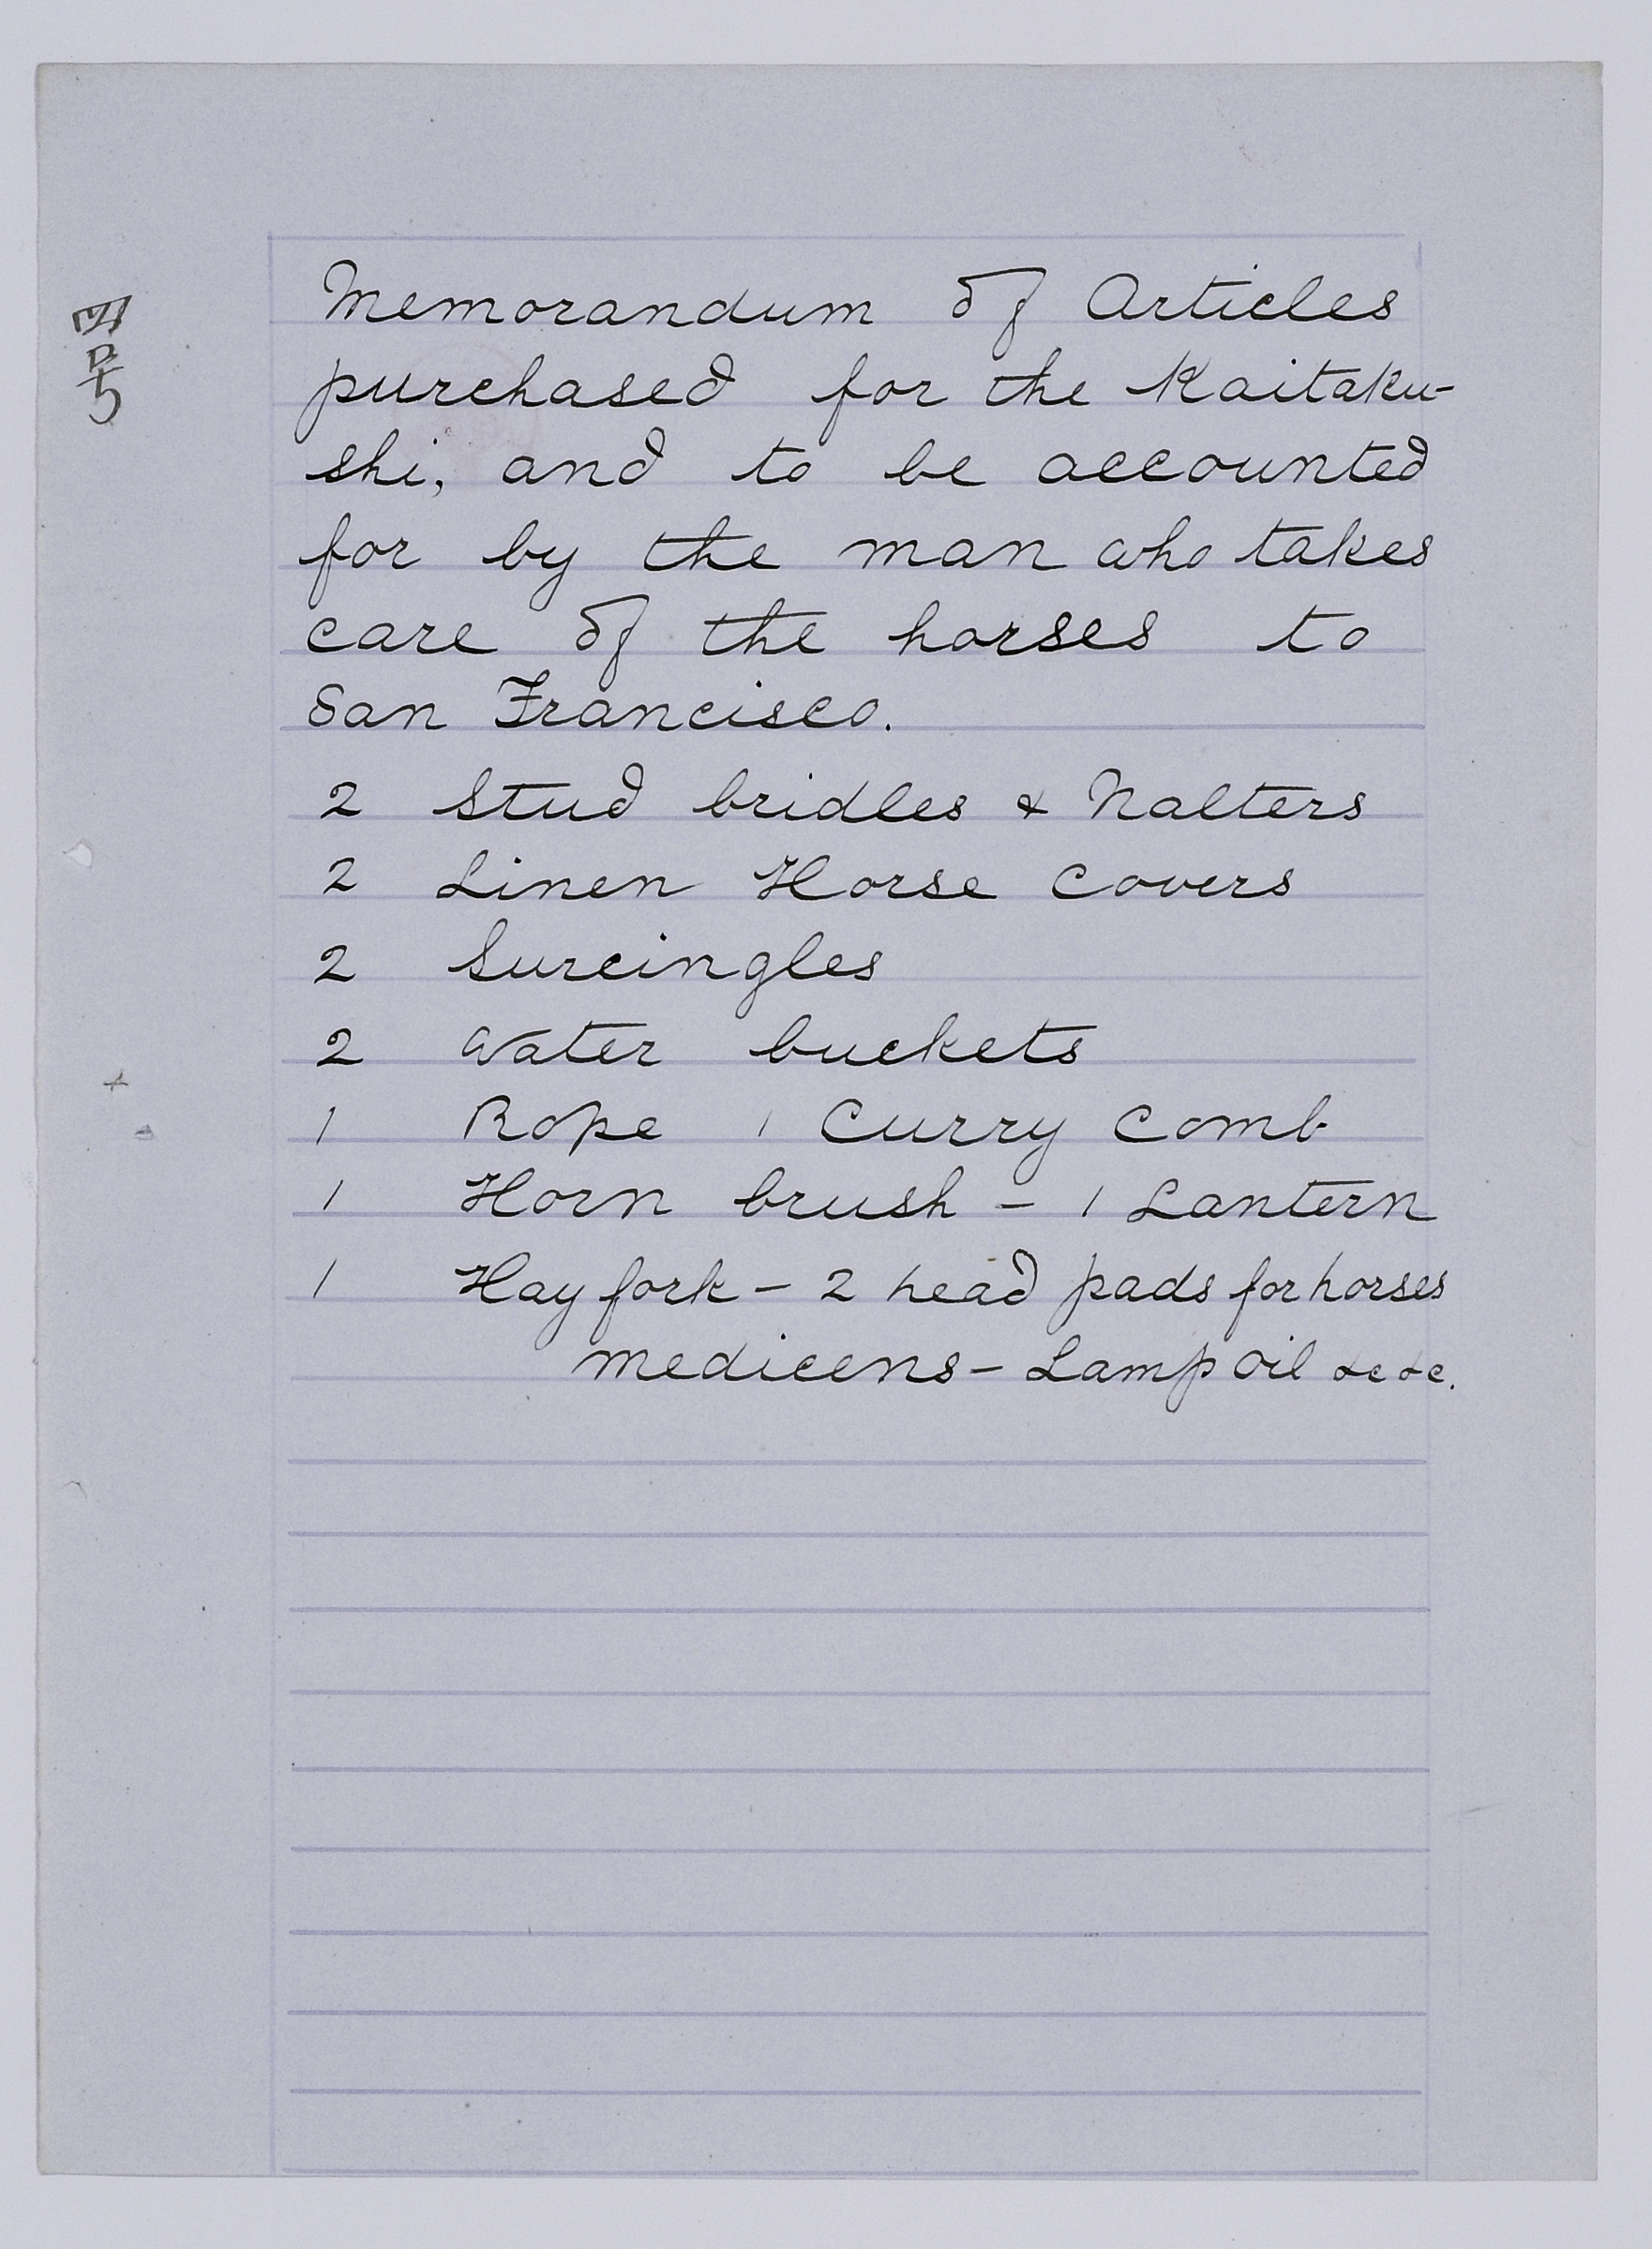 四号
Memorandum of Articles
purchased for the Kaitaku-
shi, and to be accounted
for by the man who takes
care of the horses to
San Francisco.
2 Stud bridles & Halters
2 Linen Horse Covers
2 Surcingles
2 Water buckets
1 Rope 1 Curry Comb
1 Horn brush - 1 Lantern
1 Hay fork - 2 head pads for horses
medicens - Lamp oil &c &c.